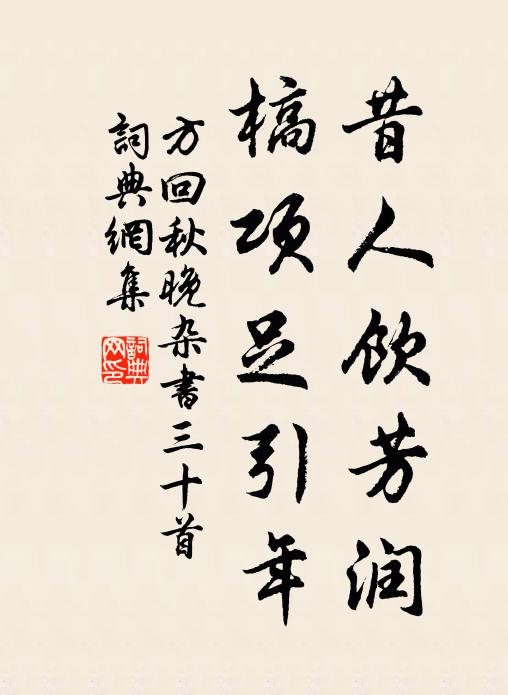 昔人饮芳润
槁项足引年
方回秋晚杂書三十首
詞典網集
詞典網印